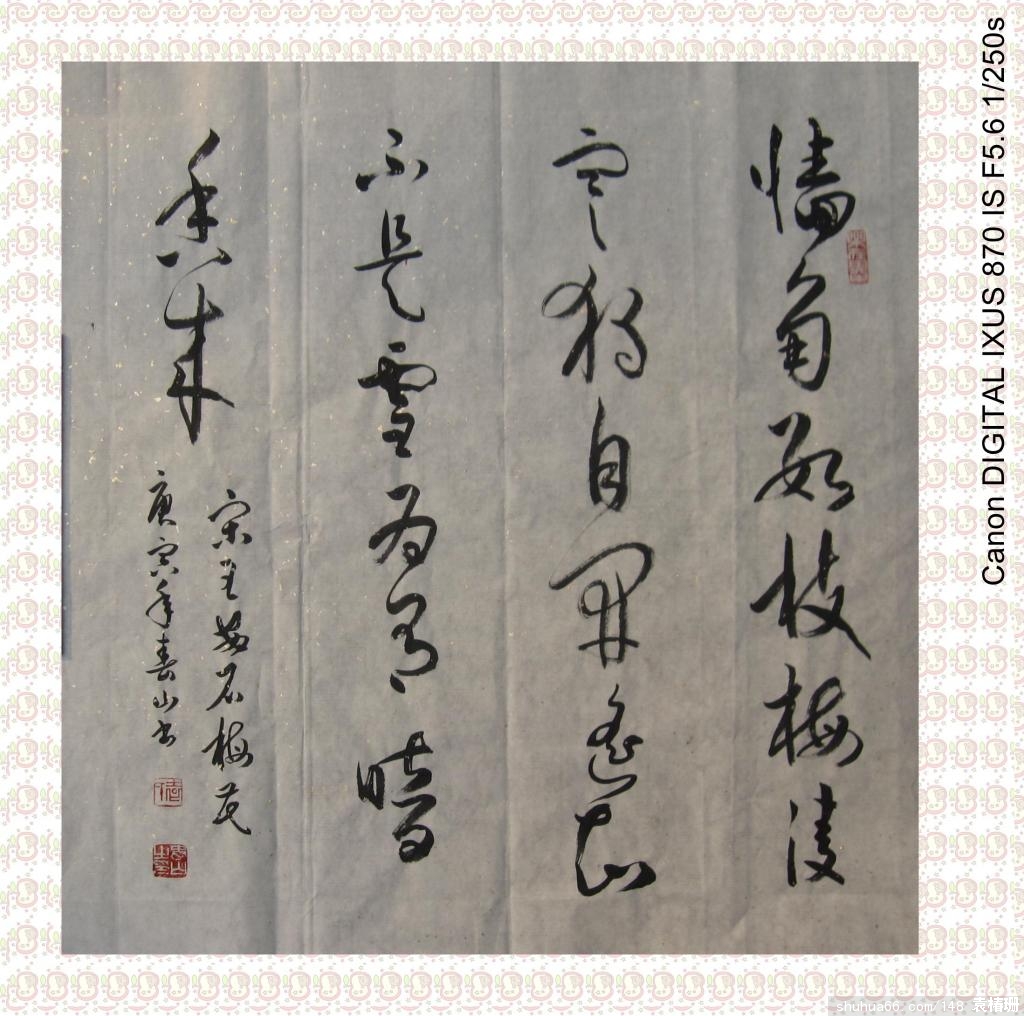 墻角數枝梅凌
寒獨自開遙知
不是雪為有暗
香來
宋王安石梅花
庚寅年春山书
Canon DIGITAL IXUS 870 IS F5.6 1/250s
shuhua66.com/148 袁椿珊